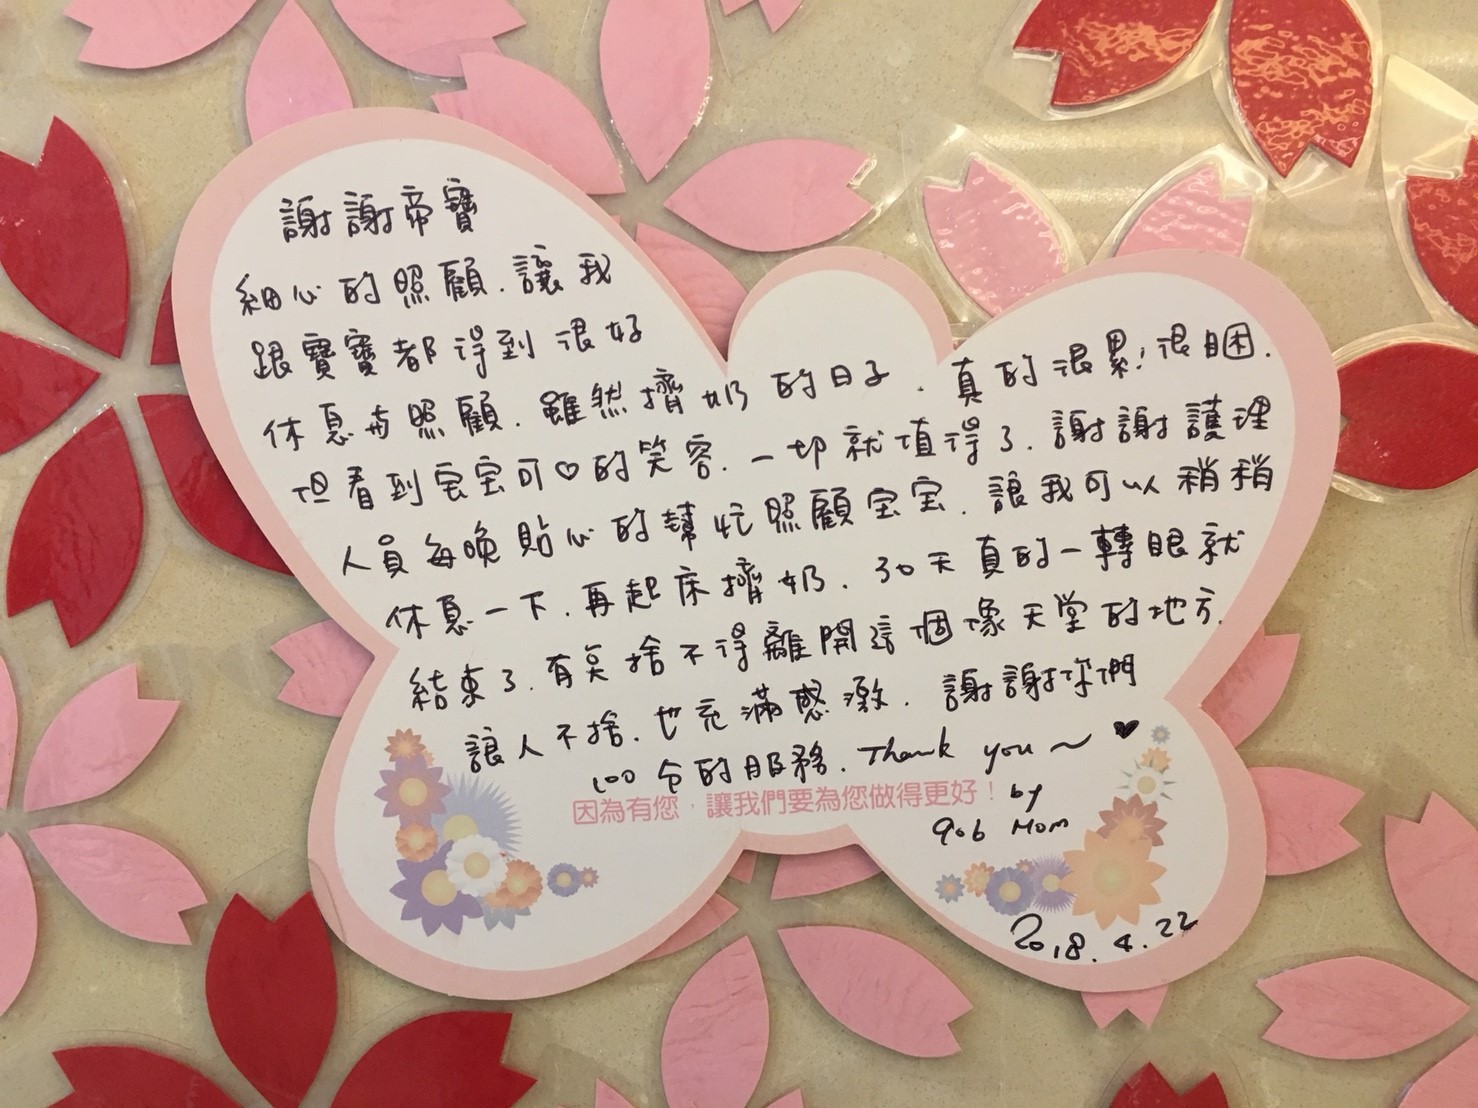 謝謝帝寶
細心的照顧.讓我
跟寶寶都得到很好
休息與照顧.雖然擠奶的日子.真的很累!很睏.
但看到宝宝可♡的笑容.一切就值得了.謝謝護理
人員每晚貼心的幫忙照顧宝宝.讓我可以稍稍
休息一下.再起床擠奶.30天真的一轉眼就
結束了.有点捨不得離開這個像天堂的地方.
讓人不捨.也充滿感激.謝謝你們
100分的服務.Thank you~♥
因為有您，讓我們要為您做得更好！
by
906 Mom
2018.4.22